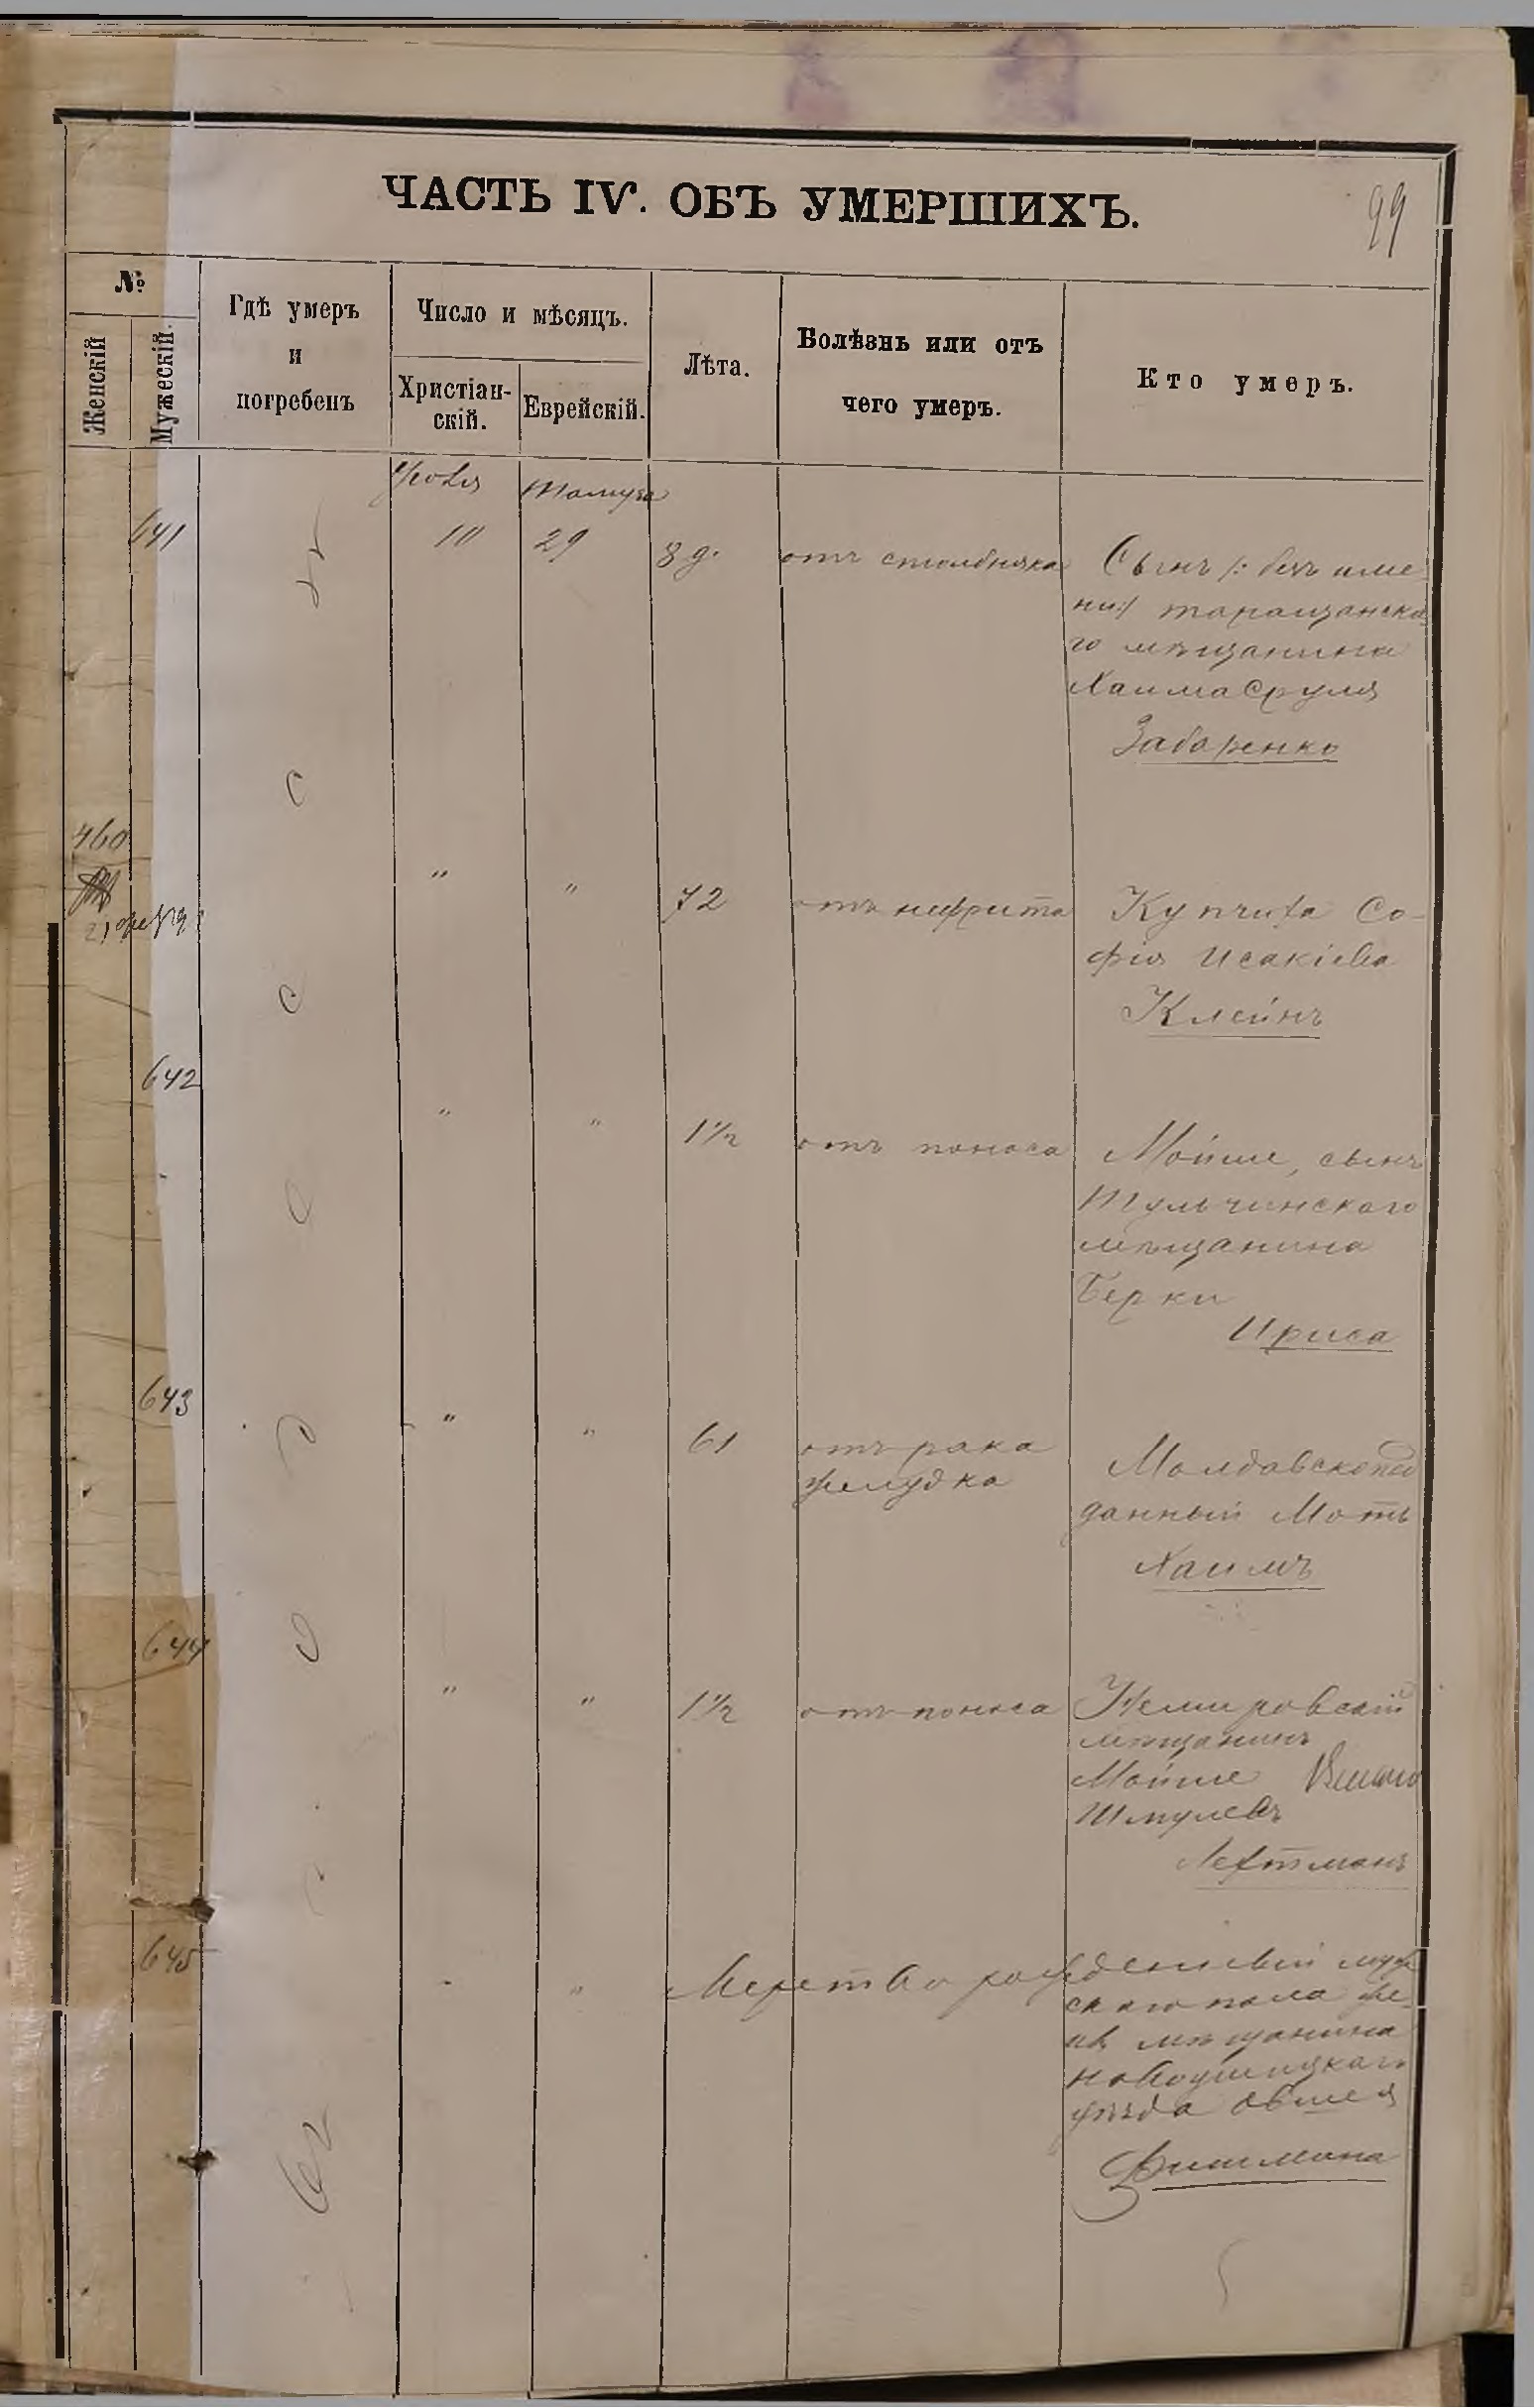 ЧАСТЬ IV. ОБЪ УМЕРШИХЪ.
99
№
Женскій
Мужескій.
Гдѣ умеръ
и
погребенъ
Число и мѣсяцъ.
Христіан-
скій.
Еврейскій.
Лѣта.
Болѣзнь или отъ
чего умеръ.
Кто умеръ.
Тамуза
641
10
29
8 д.
отъ столбняка
Сынъ /: безъ име
ни :/ таращанска
го мѣщанина
Хаима Сруля
Забаренко
460
"
"
72
отъ нифрита
Купчиха Со-
фія Исакіева
Клейнъ
642
"
"
1½
отъ поноса
Мойше, сынъ
Тульчинскаго
мѣщанина
Берки
Ириса
643
"
"
61
отъ рака
желудка
Молдавскопод
данный Моть
Хаимъ
644
"
"
1½
отъ поноса
Немировскій
мѣщанинъ
Мойше
Шмулевъ
Лехтманъ
645
"
"
Мертворожденный муж
скаго пола
мѣщанина
новоушицкаго
уѣзда Овшея
Фишмана